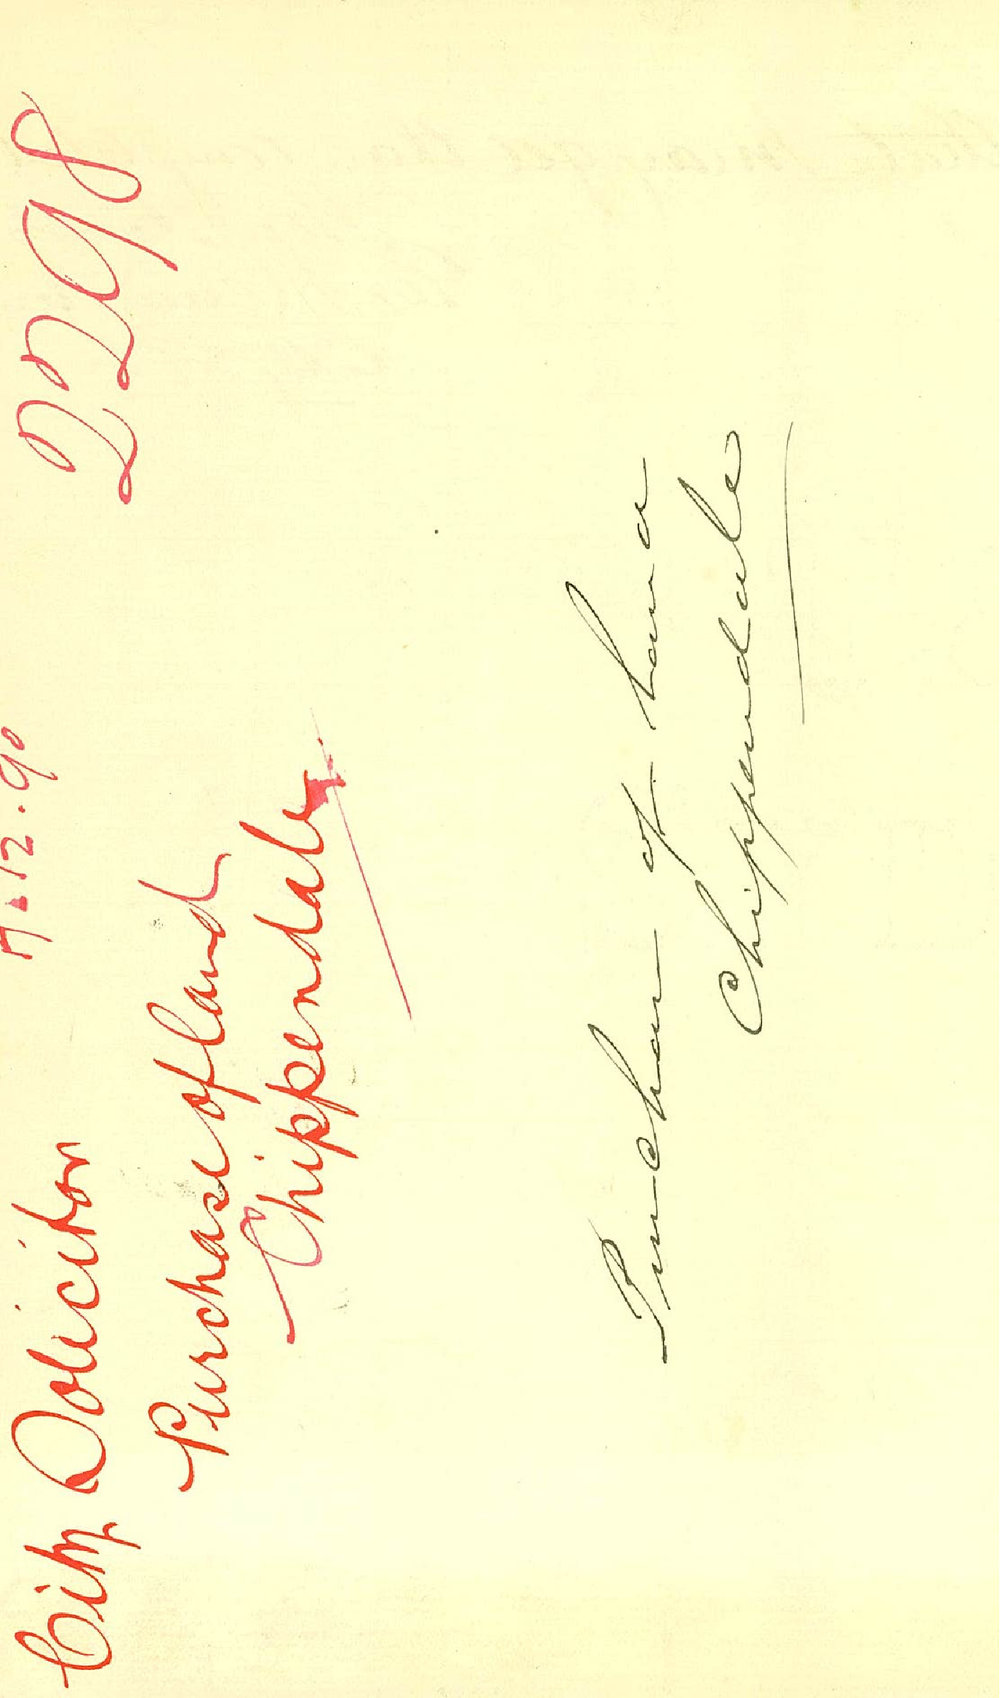 2298
City Solicitor 17.12.90
Purchase of land
Chippendale
Purchase of land
Chippendale